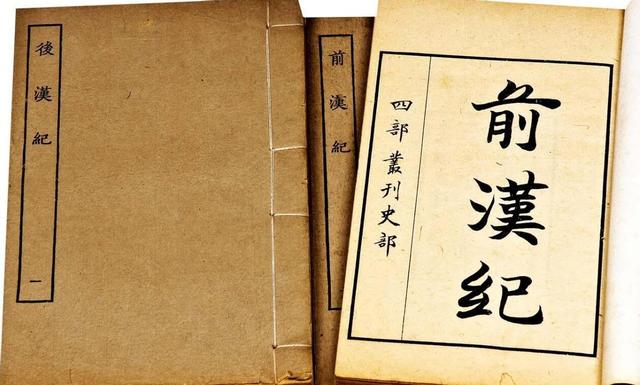 後漢紀
一
前漢紀
前漢紀
四部叢刊史部